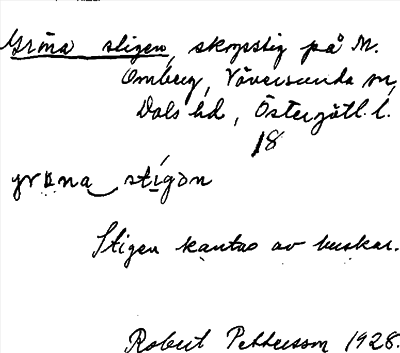 Gröna stigen, skogsstig på M.
Omberg, Väversunda sn,
Dals hd, Östergötl. l.
18
gröna stígən
Stigen kantas av buskar.
Robert Pettersson 1928.